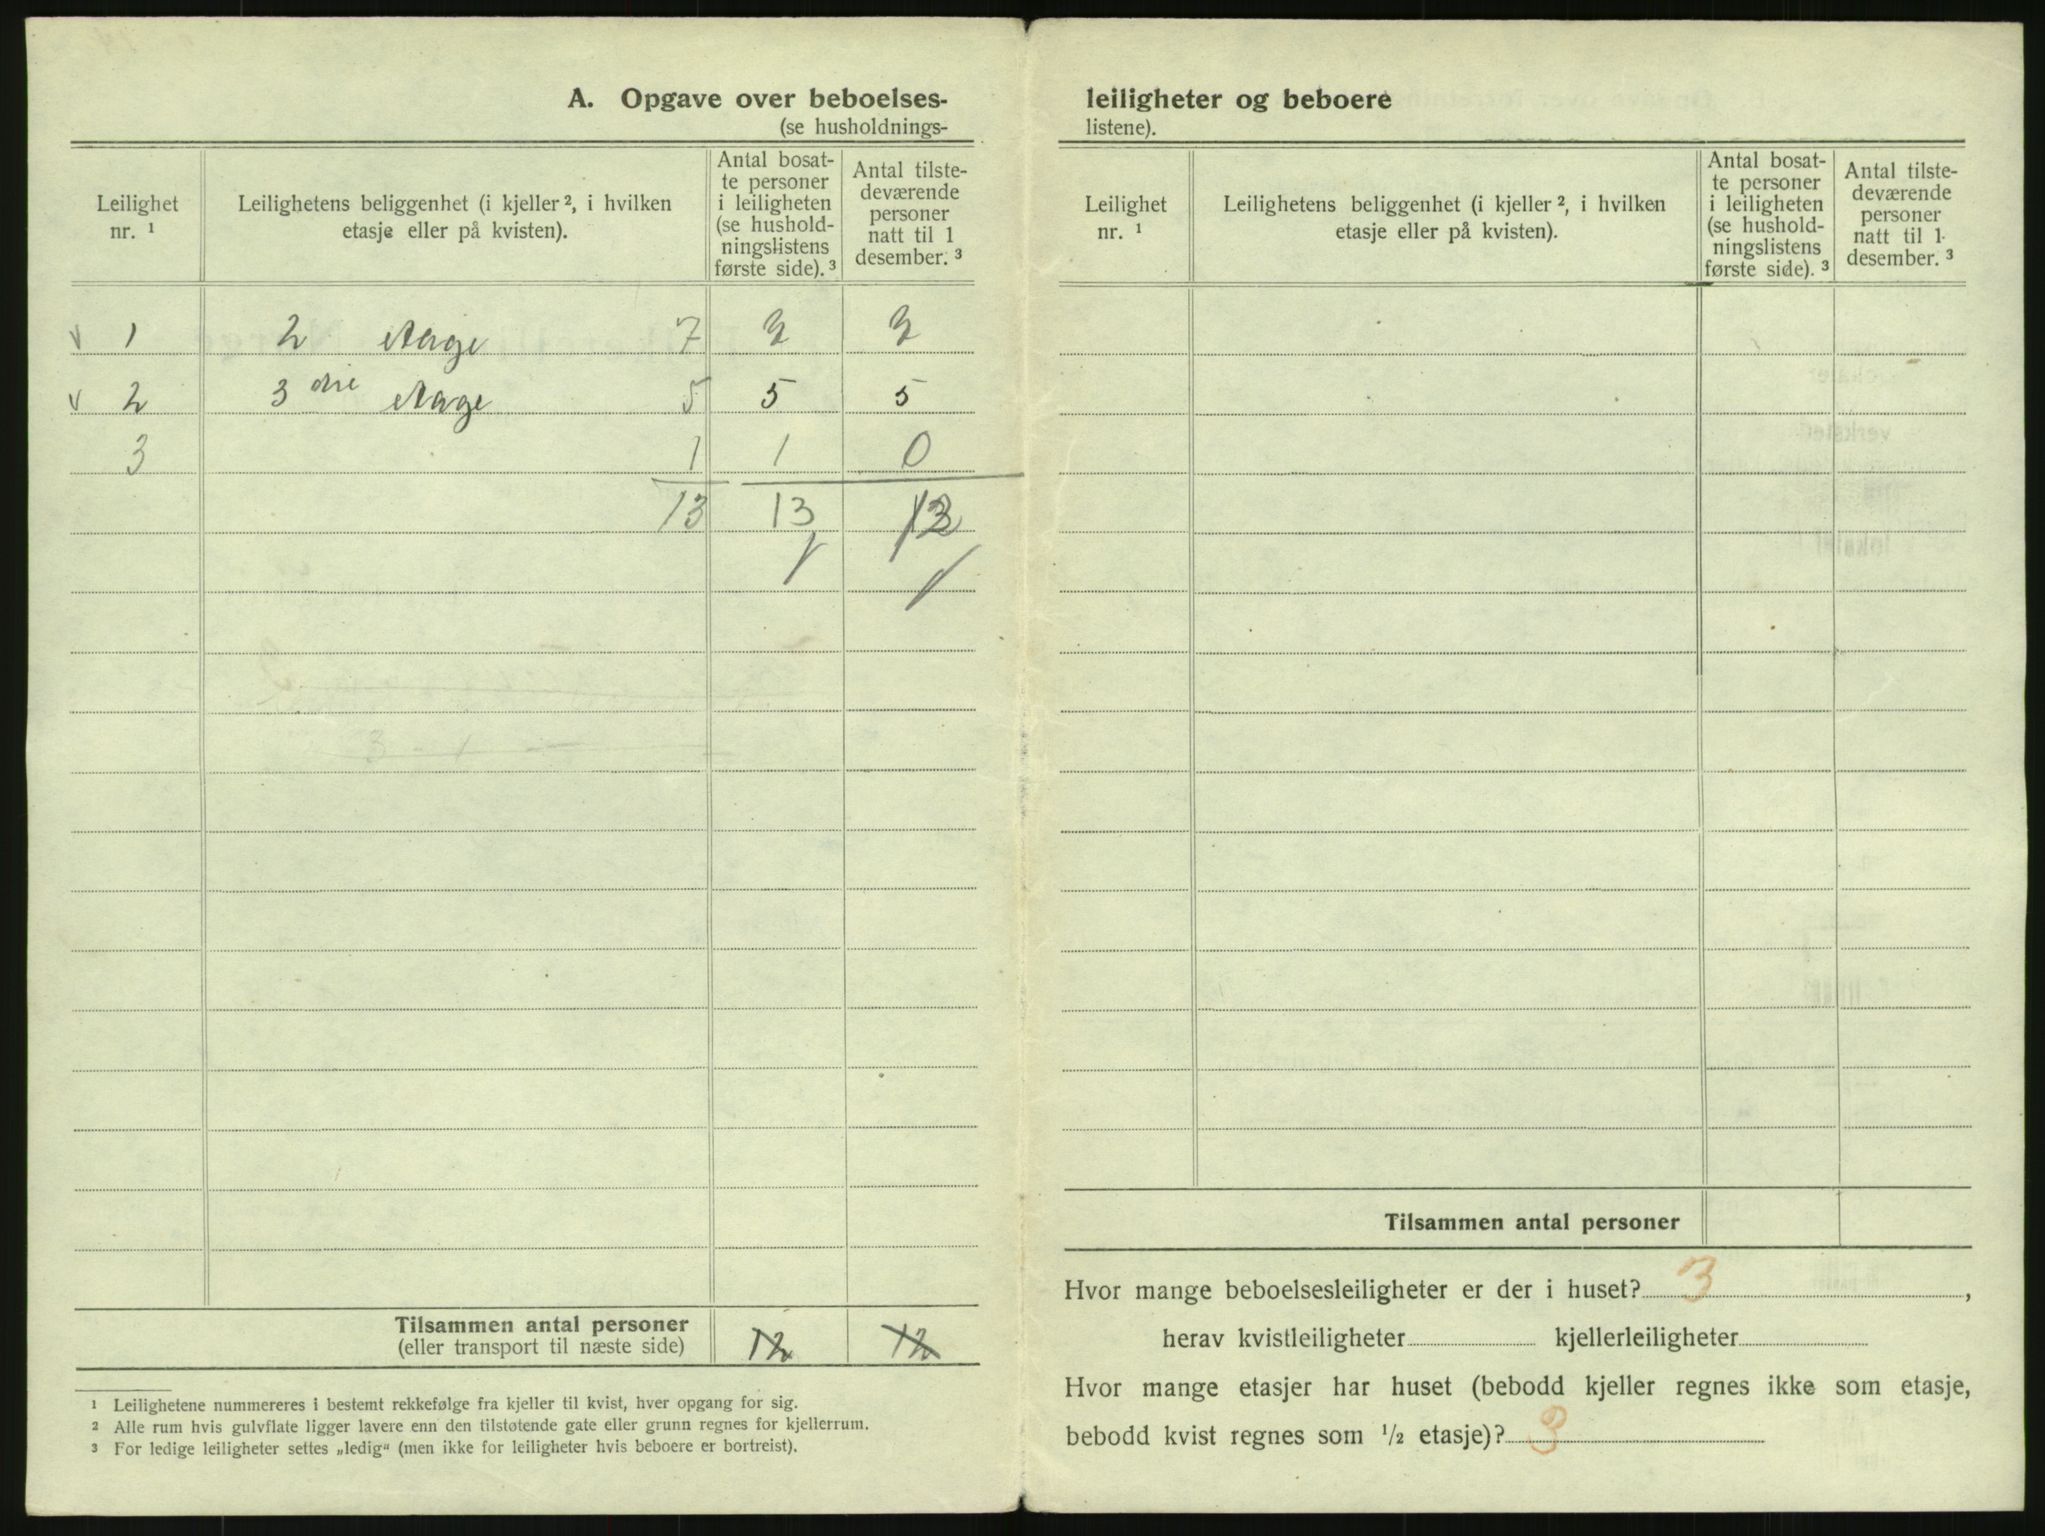 A. Opgave over beboelses-
(se husholdnings-
Leilighet nr. ¹
Leilighetens beliggenhet (i kjeller ², i hvilken etasje eller på kvisten).
Antal bosat-
te personer
i leiligheten
(se hushold-
ningslistens
første side). ³
Antal tilste-
deværende
personer
natt til 1
desember. ³
1 2 etage 7 7 7
2 3 dre etage 5 5 5
3 1 1 0
13 13
Tilsammen antal personer 12 12
(eller transport til næste side)
¹ Leilighetene nummereres i bestemt rekkefølge fra kjeller til kvist, hver opgang for sig.
² Alle rum hvis gulvflate ligger lavere enn den tilstøtende gate eller grunn regnes for kjellerrum.
³ For ledige leiligheter settes „ledig“ (men ikke for leiligheter hvis beboere er bortreist).
leiligheter og beboere
listene).
Leilighet nr. ¹
Leilighetens beliggenhet (i kjeller ², i hvilken etasje eller på kvisten).
Antal bosat-
te personer
i leiligheten
(se hushold-
ningslistens
første side). ³
Antal tilste-
deværende
personer
natt til 1
desember. ³
Tilsammen antal personer
Hvor mange beboelsesleiligheter er der i huset? 3,
herav kvistleiligheter kjellerleiligheter
Hvor mange etasjer har huset (bebodd kjeller regnes ikke som etasje,
bebodd kvist regnes som ½ etasje)? 3